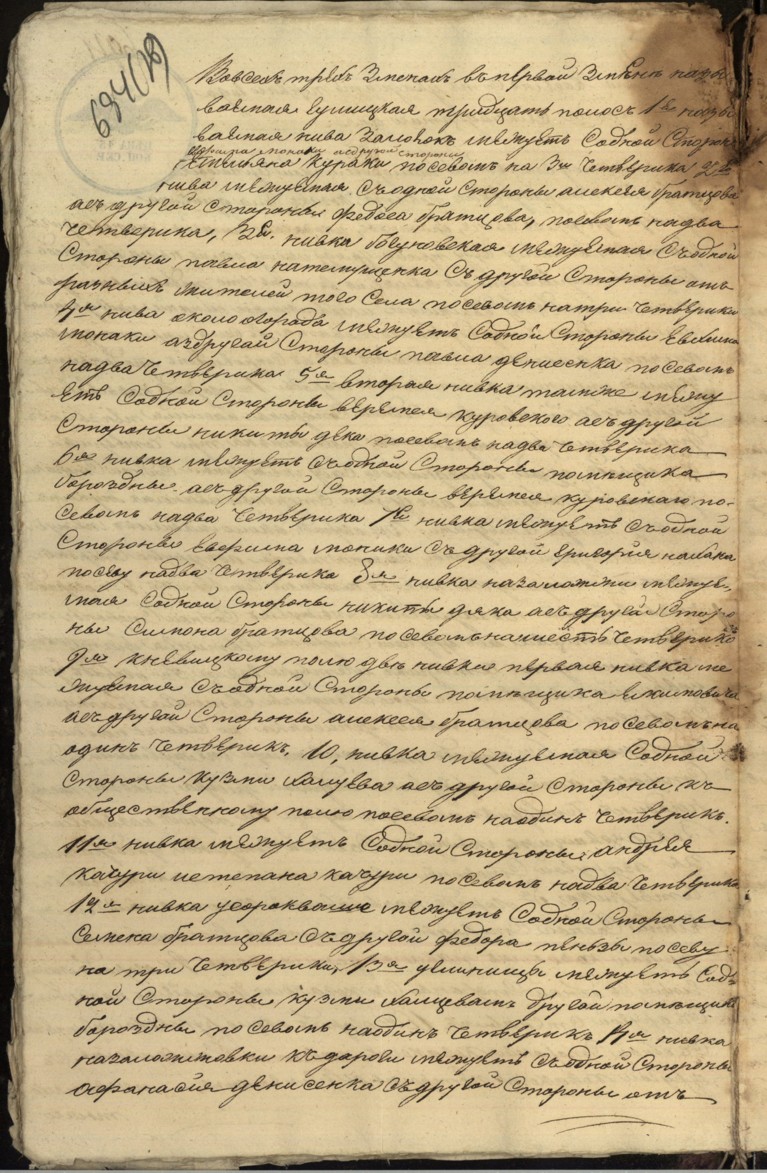 694(78)
Вовсехъ трехъ Зменахъ въ первой Зменѣ назы
ваемая Гулицкая тридцать полосъ 1я назы
ваемая нива межуетъ Содной Сторон
Ефима монаки асдругой стороны
Кураки посевомъ на 3и Четверика 2я
нива межуемая съодной Стороны алексея братцова
асъ другой Стороны федоса братцова, посевомъ надва
Четверика, 3я. нивка богуновская межуемая Съодной
Стороны павла Съ другой Стороны отъ
разныхъ жителей того Села посевомъ натри Четверика
4я нива около огорода межуетъ Содной Стороны Евфима
монаки аздругой Стороны павла денисенка посевомъ
надва Четверика 5я вторая нивка также межу
етъ Содной Стороны веремея куровского асъ другой
Стороны никиты дяка посевомъ надва Четверика
6я нивка межуетъ Съодной Стороны помещика
бороздны асъ другой Стороны веремея куровскаго по-
севомъ надва Четверика 7я нивка межуетъ Съодной
Стороны Евфима моники Съ другой григория
посеву надва Четверика 8я нивка межуе-
мая Содной Стороны никиты дяка асъ другой Сторо
ны Симона братцова посевомъ нашесть Четвериковъ
9я полю две нивки первая нивка ме
жуемая Съодной Стороны помещика
асъ другой Стороны алексея братцова посевомъ на
одинъ Четверикъ, 10, нивка межуемая Содной
Стороны кузми асъ другой Стороны къ
общественному полю посевомъ наодинъ Четверикъ.
11я нивка межуетъ Содной Стороны андрея
качури истепана качури посевомъ надва Четверика
12я нивка межуетъ Содной Стороны
братцова Съ другой федора пензы посеву
на три Четверика, 13я межуетъ Сод-
ной Стороны кузми другой помещика
бороздны посевомъ наодинъ Четверикъ 14я нивка
къ дороги межуетъ Съодной Стороны
афанасия денисенка Съ другой Стороны отъ